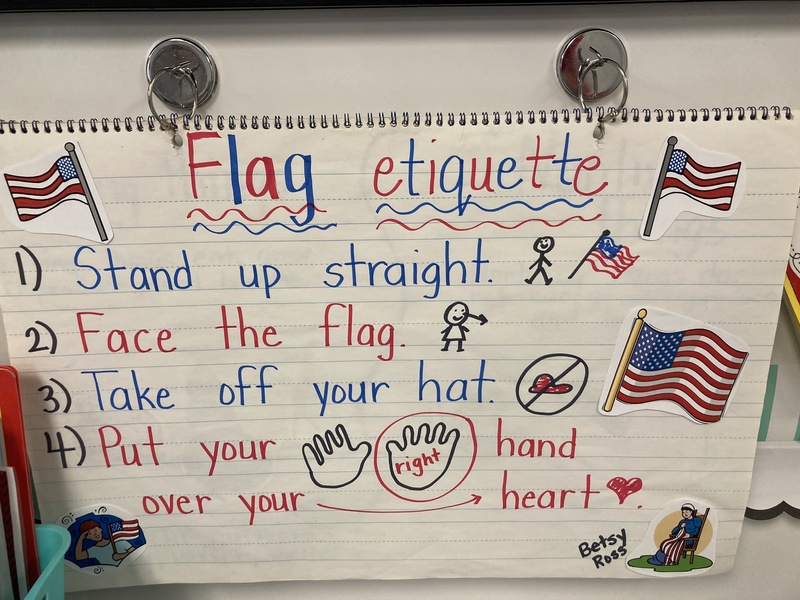 Flag etiquette
1) Stand up straight.
2) Face the flag.
3) Take off your hat.
4) Put your right hand
over your heart.
Betsy
Ross